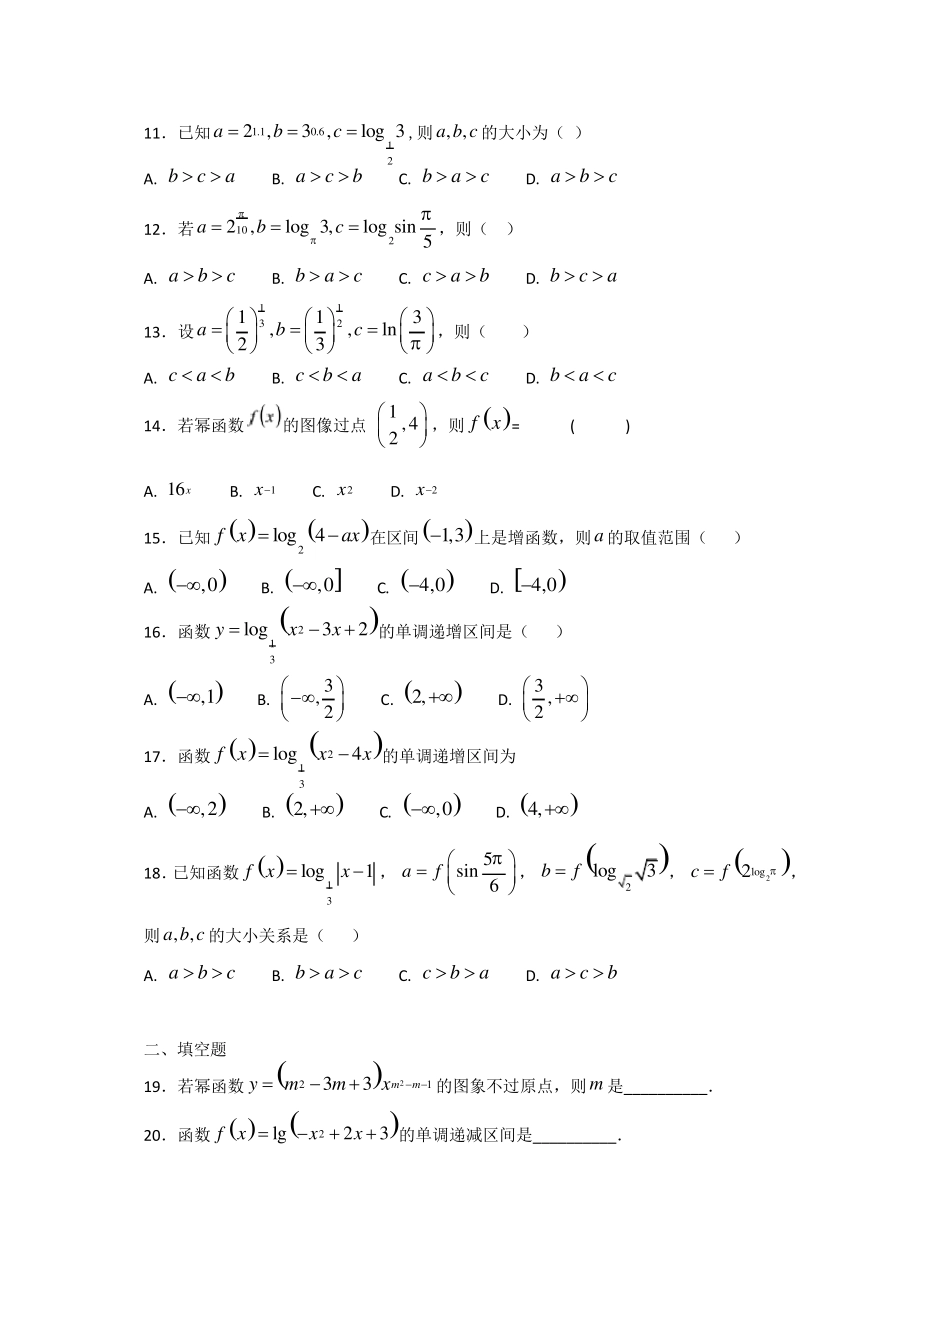 11．已知 a = 2^{1.1}, b = 3^{0.6}, c = log_{1/2} 3 , 则 a, b, c 的大小为（ ）
A. b > c > a B. a > c > b C. b > a > c D. a > b > c
12．若 a = 2^{π/10}, b = log_π 3, c = log_2 sin π/5，则（ ）
A. a > b > c B. b > a > c C. c > a > b D. b > c > a
13．设 a = (1/2)^{1/3}, b = (1/3)^{1/2}, c = ln(3/π)，则（ ）
A. c < a < b B. c < b < a C. a < b < c D. b < a < c
14．若幂函数 f(x) 的图像过点 (1/2, 4)，则 f(x)= ( )
A. 16^x B. x^{−1} C. x^2 D. x^{−2}
15．已知 f(x) = log_2(4 − ax) 在区间 (−1,3) 上是增函数，则 a 的取值范围（ ）
A. (−∞,0) B. (−∞,0] C. (−4,0) D. [−4,0)
16．函数 y = log_{1/3}(x^2 − 3x + 2) 的单调递增区间是（ ）
A. (−∞,1) B. (−∞, 3/2) C. (2,+∞) D. (3/2, +∞)
17．函数 f(x) = log_{1/3}(x^2 − 4x) 的单调递增区间为
A. (−∞,2) B. (2,+∞) C. (−∞,0) D. (4,+∞)
18．已知函数 f(x) = log_{1/3}|x − 1|， a = f(sin 5π/6)， b = f(log_{√2} √3)， c = f(2^{log_2 π})，
则 a, b, c 的大小关系是（ ）
A. a > b > c B. b > a > c C. c > b > a D. a > c > b
二、填空题
19．若幂函数 y = (m^2 − 3m + 3)x^{m^2−m−1} 的图象不过原点，则 m 是__________．
20．函数 f(x) = lg(−x^2 + 2x + 3) 的单调递减区间是__________．